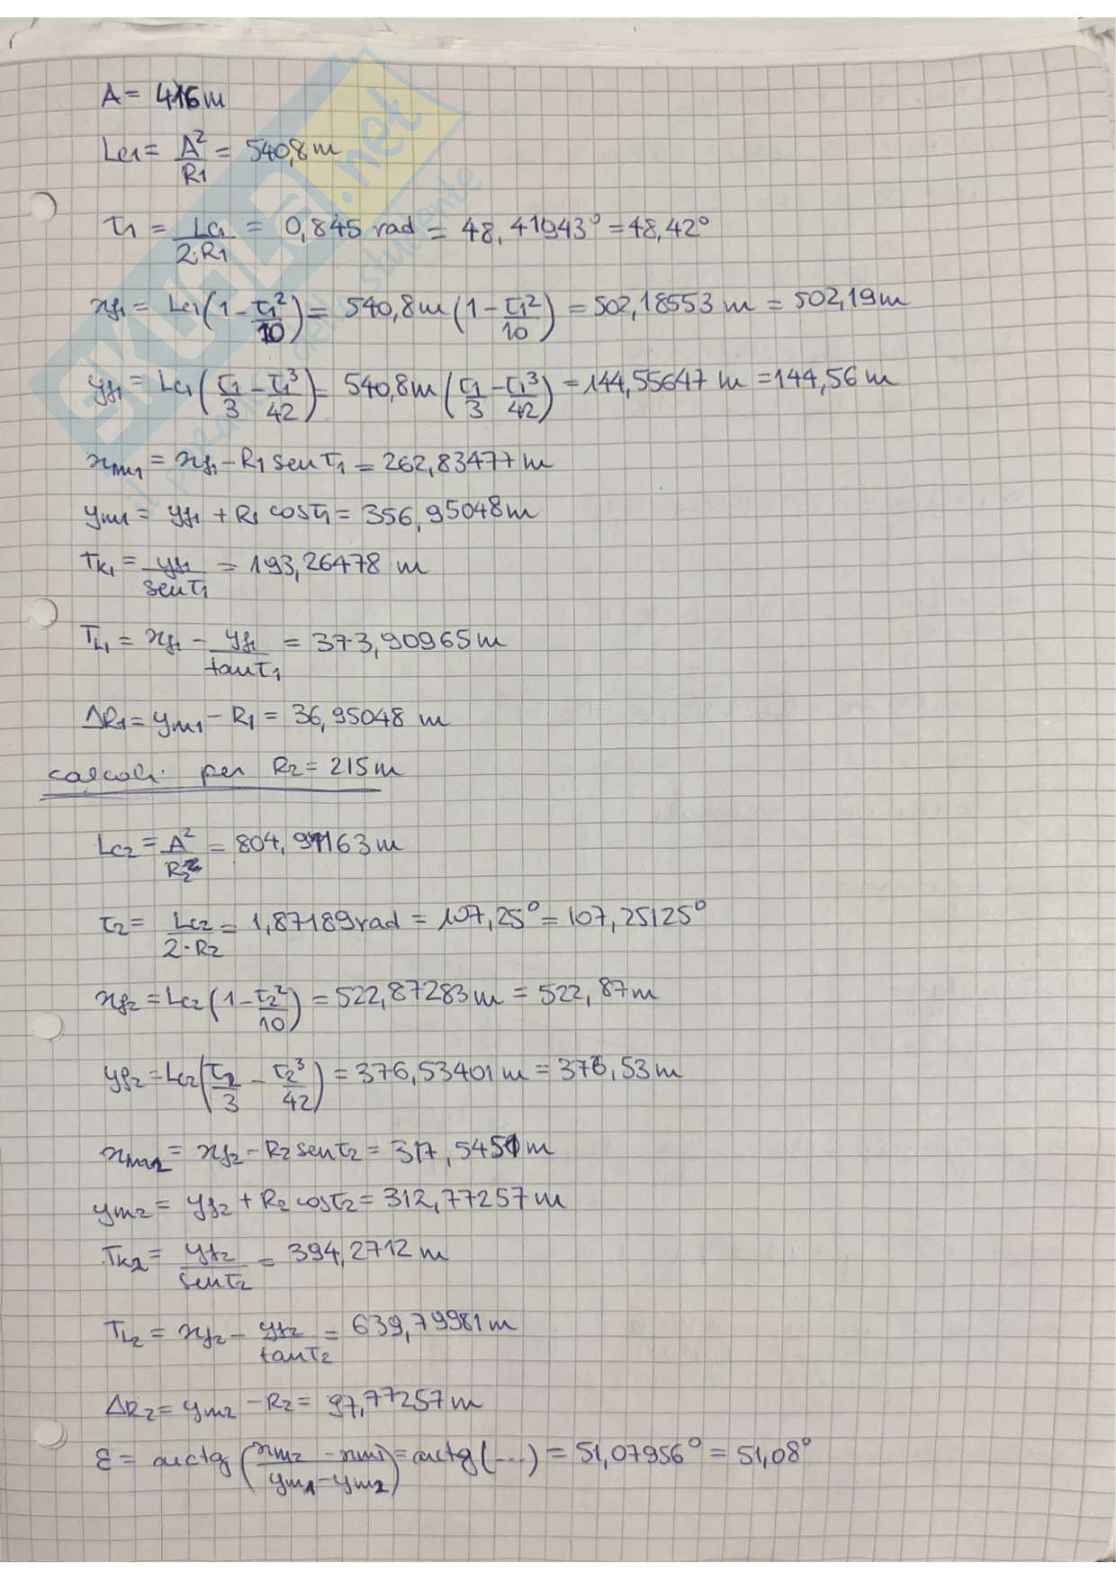 A = 416 m
Lc1 = A²/R1 = 540,8 m
τ1 = Lc1/(2·R1) = 0,845 rad = 48,41943° = 48,42°
xf1 = Lc1(1 - τ1²/10) = 540,8 m (1 - τ1²/10) = 502,18553 m = 502,19 m
yf1 = Lc1(τ1/3 - τ1³/42) = 540,8 m (τ1/3 - τ1³/42) = 144,55647 m = 144,56 m
xm1 = xf1 - R1 sen τ1 = 262,83477 m
ym1 = yf1 + R1 cos τ1 = 356,95048 m
TK1 = yf1/sen τ1 = 193,26478 m
TL1 = xf1 - yf1/tan τ1 = 373,90965 m
ΔR1 = ym1 - R1 = 36,95048 m
calcoli per R2 = 215 m
Lc2 = A²/R2 = 804,91163 m
τ2 = Lc2/(2·R2) = 1,87189 rad = 107,25° = 107,25125°
xf2 = Lc2(1 - τ2²/10) = 522,87283 m = 522,87 m
yf2 = Lc2(τ2/3 - τ2³/42) = 376,53401 m = 376,53 m
xm2 = xf2 - R2 sen τ2 = 317,5451 m
ym2 = yf2 + R2 cos τ2 = 312,77257 m
TK2 = yf2/sen τ2 = 394,2712 m
TL2 = xf2 - yf2/tan τ2 = 639,79981 m
ΔR2 = ym2 - R2 = 97,77257 m
ε = arctg((xm2 - xm1)/(ym1 - ym2)) = arctg(...) = 51,07956° = 51,08°
SKUOLA.net